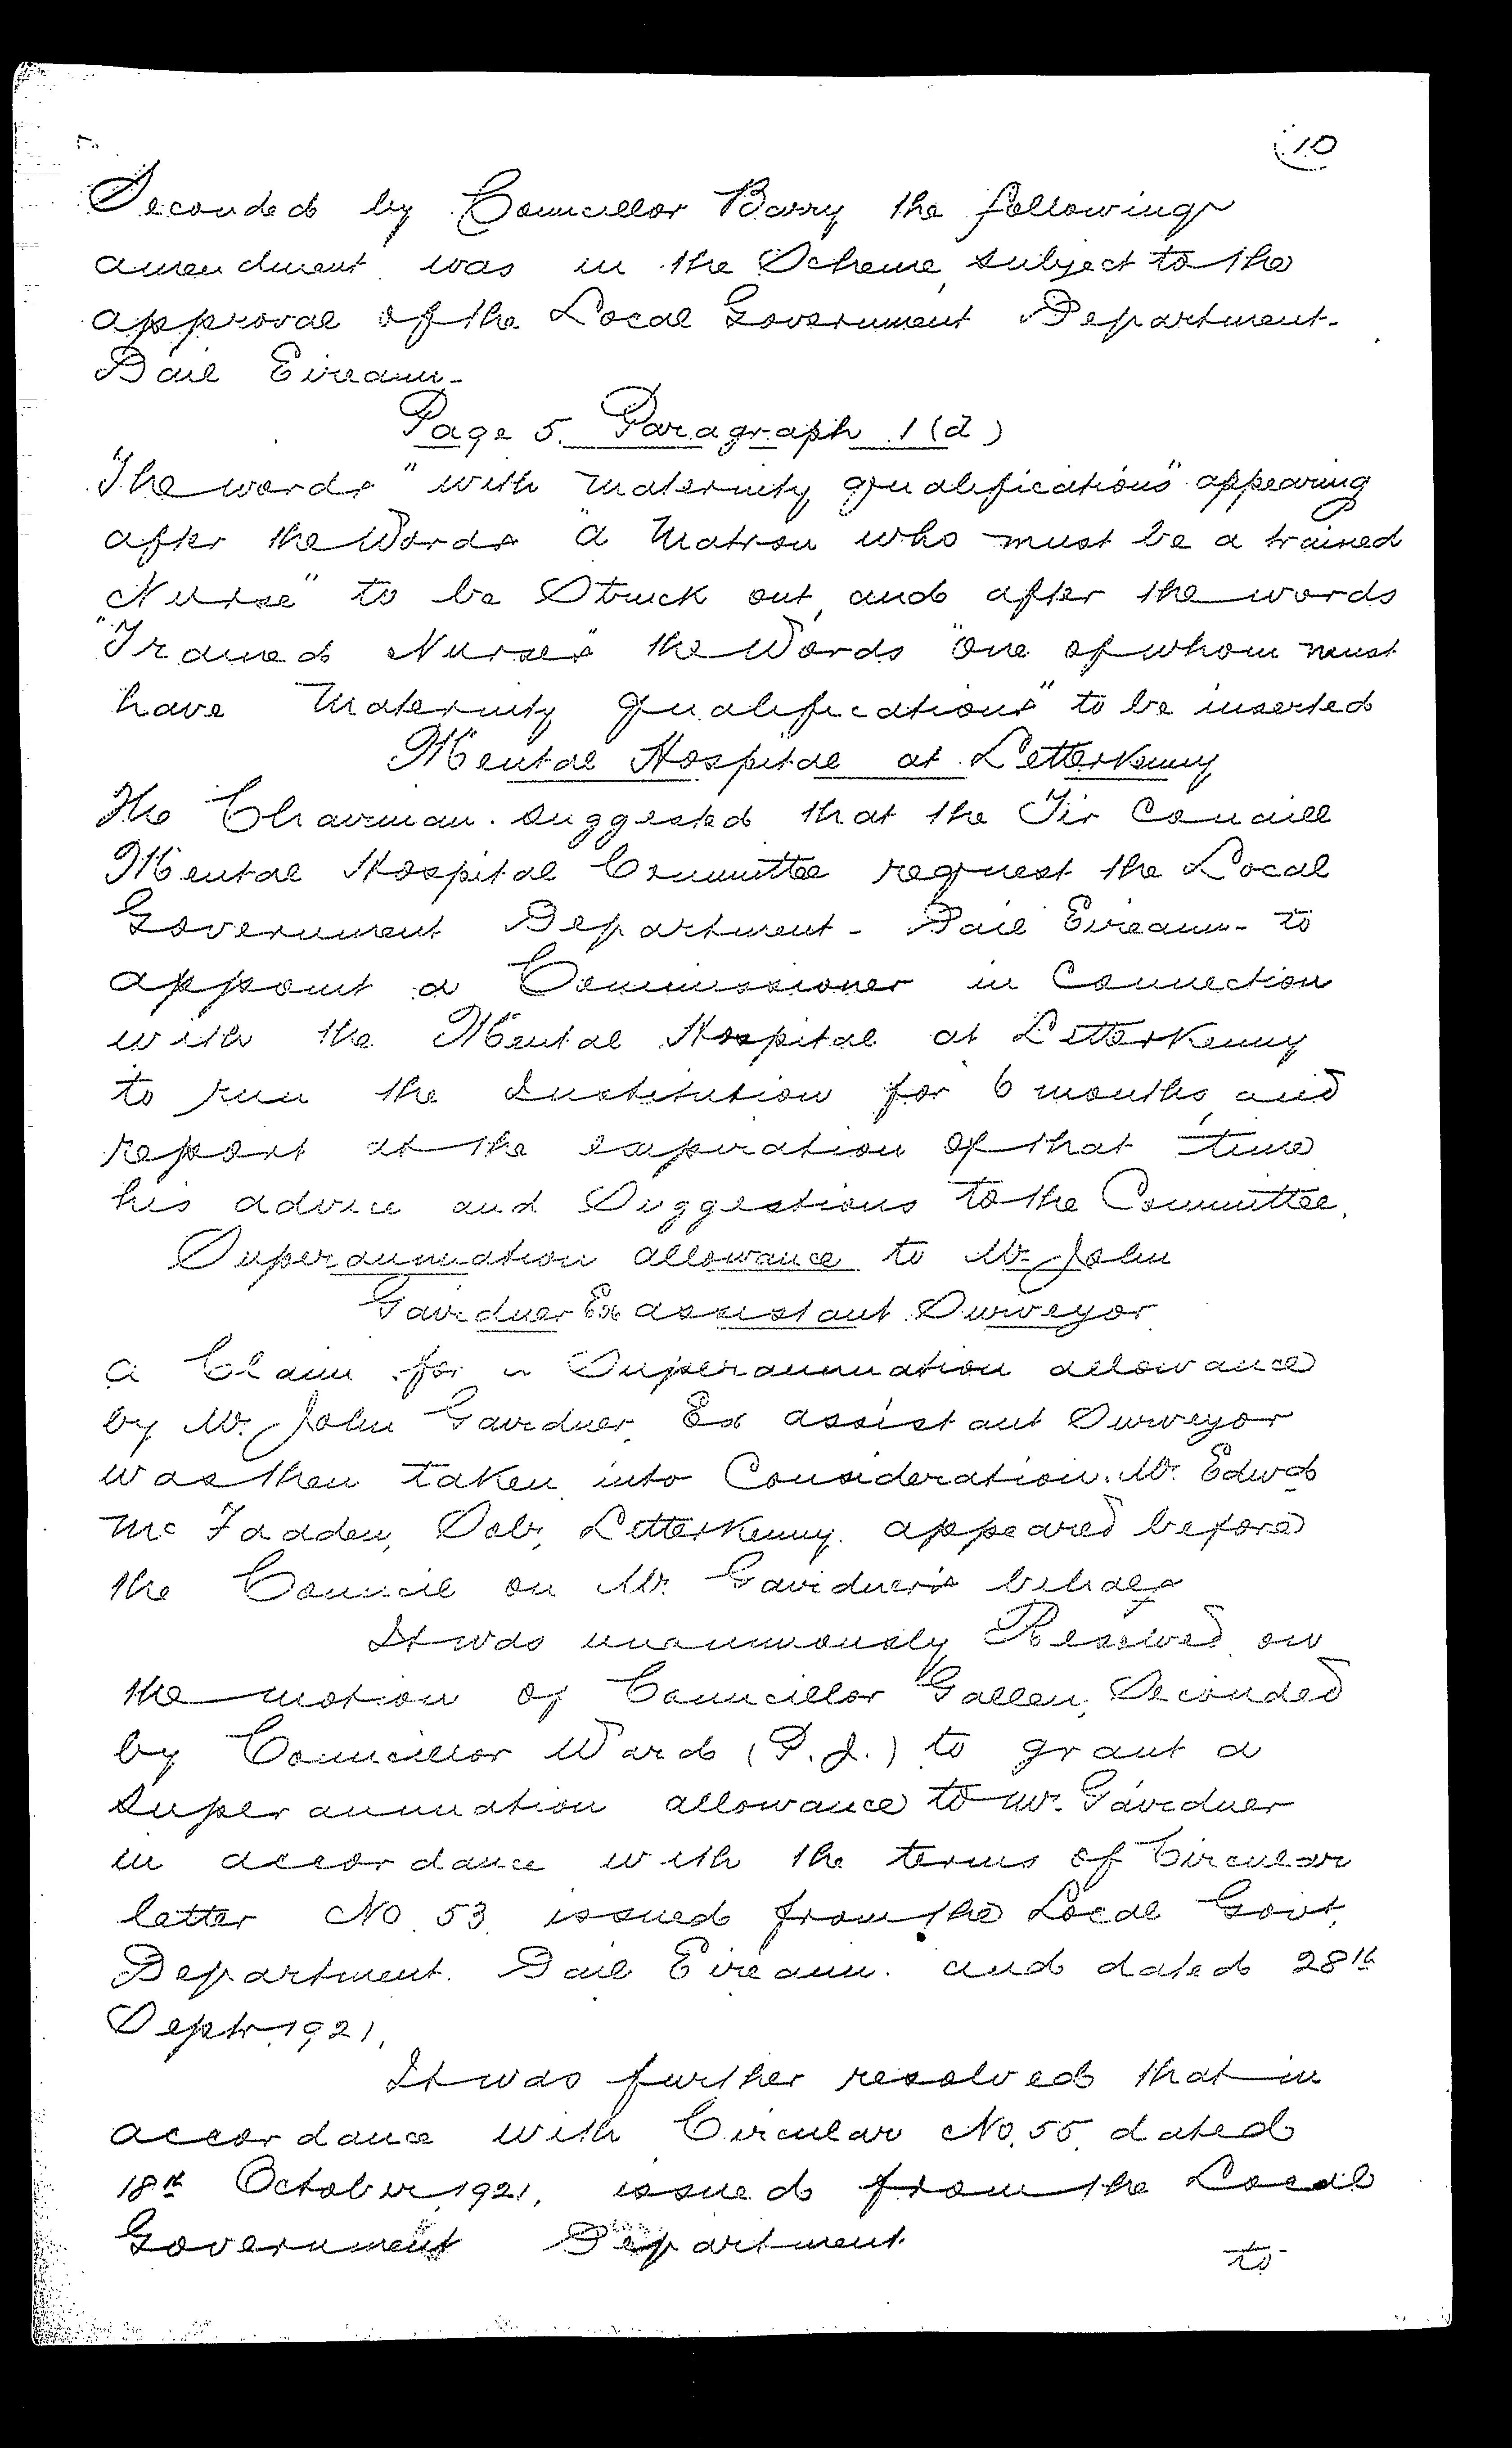 10
Seconded by Councillor Barry the following
amendment was in the Scheme, subject to the
approval of the Local Government Department-
Dail Eireann-
Page 5. Paragraph 1(d)
The words "with maternity qualifications" appearing
after the Words "a Matron who must be a trained
Nurse" to be Struck out, and after the words
"Trained Nurses" the Words "one of whom must
have Maternity qualifications" to be inserted
Mental Hospital at Letterkenny
The Chairman suggested that the Tir Conaill
Mental Hospital Committee request the Local
Government Department - Dail Eireann - to
appoint a Commissioner in Connection
with the Mental Hospital at Letterkenny
to run the Institution for 6 months, and
report at the expiration of that time
his advice and Suggestions to the Committee.
Superannuation allowance to Mr. John
Gavidner Ex assistant Surveyor
a Claim for a Superannuation allowance
by Mr. John Gavidner, Ex assistant Surveyor
was then taken into Consideration. Mr. Edwd
Mc Fadden, Solr, Letterkenny. appeared before
the Council on Mr. Gavidner's behalf
It was unanimously Resolved on
the motion of Councillor Gallen, Seconded
by Councillor Ward (P.J.) to grant a
superannuation allowance to Mr. Gavidner
in accordance with the terms of Circular
letter No 53 issued from the Local Govt.
Department. Dail Eireann. and dated 28th
Septr. 1921.
It was further resolved that in
accordance with Circular No. 55 dated
18th October, 1921, issued from the Local
Government Department
to